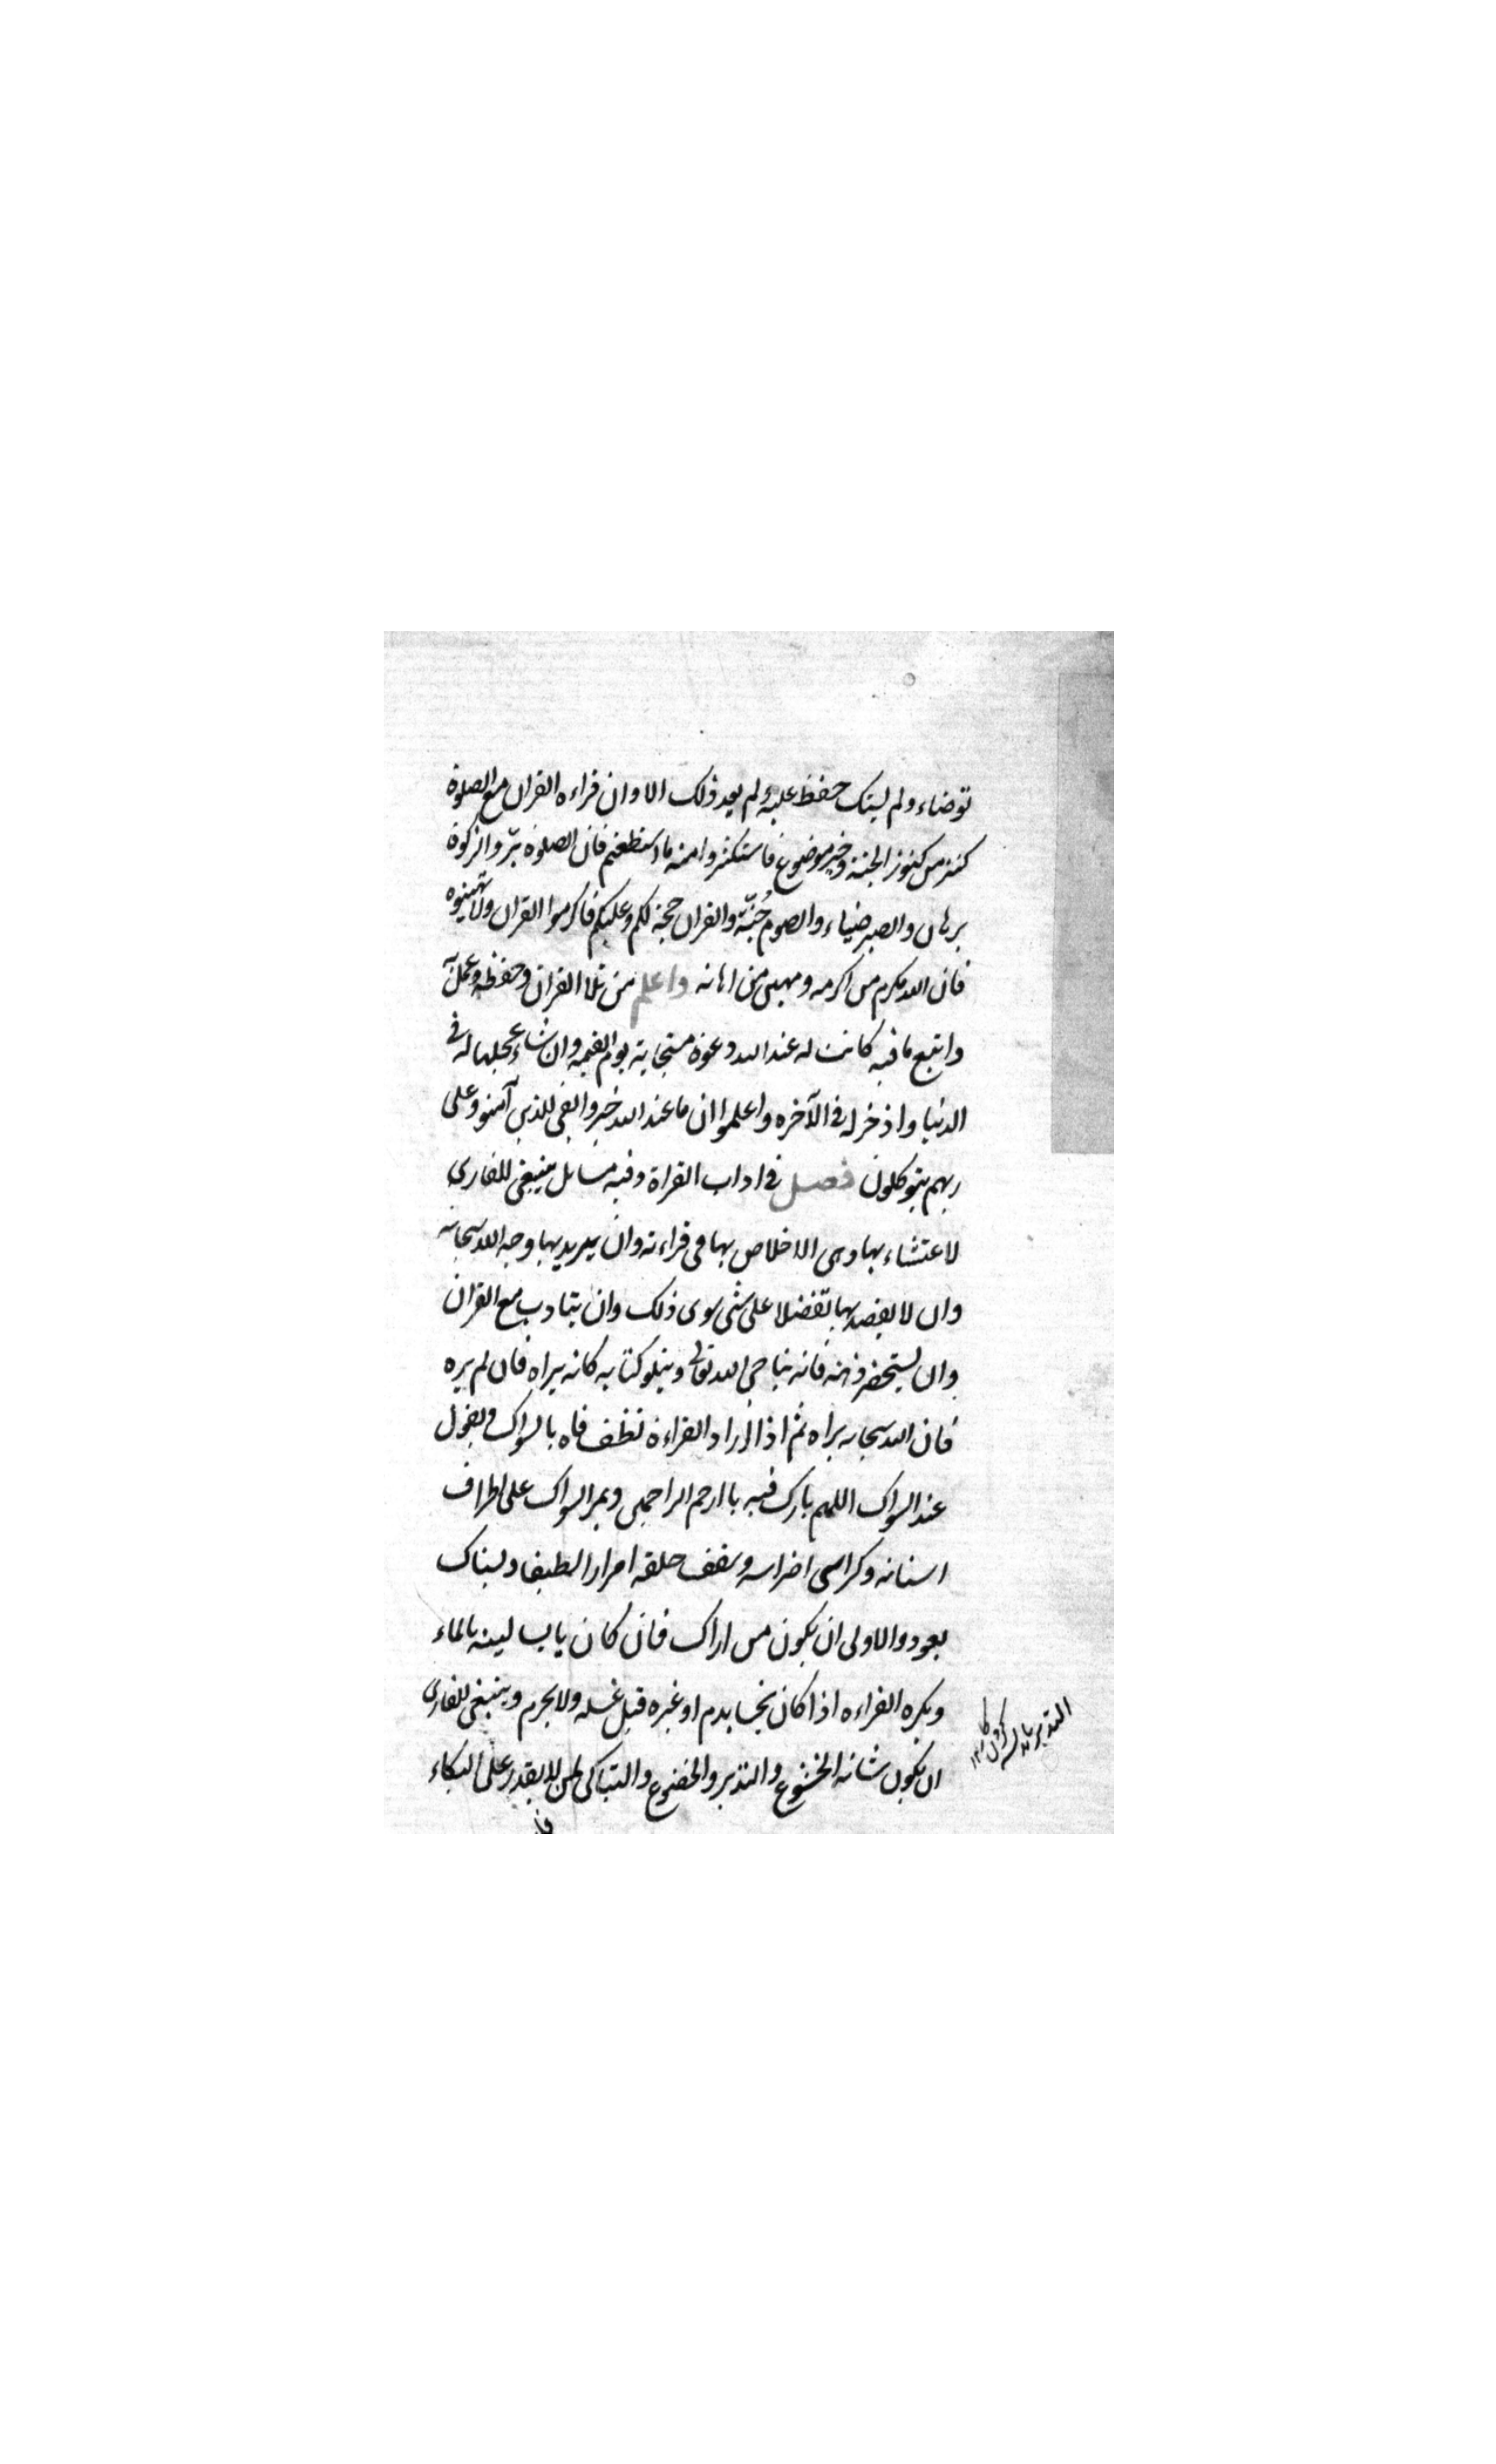 توضاء ولم يستك حفظ عليه ولم يعد ذلك الا وان قراءه القران مع الصلوة
كنز من كنوز الجنة وخير موضوع فاستكثروا منه ما استطعتم فان الصلوة بر والزكوة
برهان والصبر ضياء والصوم جُنّة والقران حجة لكم وعليكم فاكرموا القران ولا تهينوه
فان الله مكرم من اكرمه ومهين من اهانه واعلم من تلا القران وحفظه وعمل به
واتبع ما فيه كانت له عند الله دعوة مستجابة يوم القيمه وان شاء عجلها له فى
الدنيا واذخر له فى الآخره واعلموا ان ما عند الله خير وابقى للذين آمنو وعلى
ربهم يتوكلون فصل فى اداب القراة وفيه مسايل ينبغى للقارى
لاعتشاء بها وهى الاخلاص بها فى قراءته وان يريد بها وجه الله سبحانه
وان لا يقصد بها تفضلا على شى سوى ذلك وان يتادب مع القران
وان يستحضر ذهنه فانه يناجى الله تعالى ويتلو كتابه كانه يراه فان لم يره
فان الله سبحانه يراه ثم اذا اراد القراءة نظف فاه بالسواك ويقول
عند السواك اللهم بارك فيه يا ارحم الراحمين ويمر السواك على اطراف
اسنانه وكراسى اضراسه وسقف حلقه امرارا لطيفا ويستاك
بعود والاولى ان يكون من اراك فان كان يابسا لينه بالماء
ويكره القراءه اذا كان نجسا بدم او غيره قبل غسله ولا يحرم وينبغى للقارى
ان يكون شانه الخشوع والتدبر والخضوع والتباكى لمن لا يقدر على البكاء